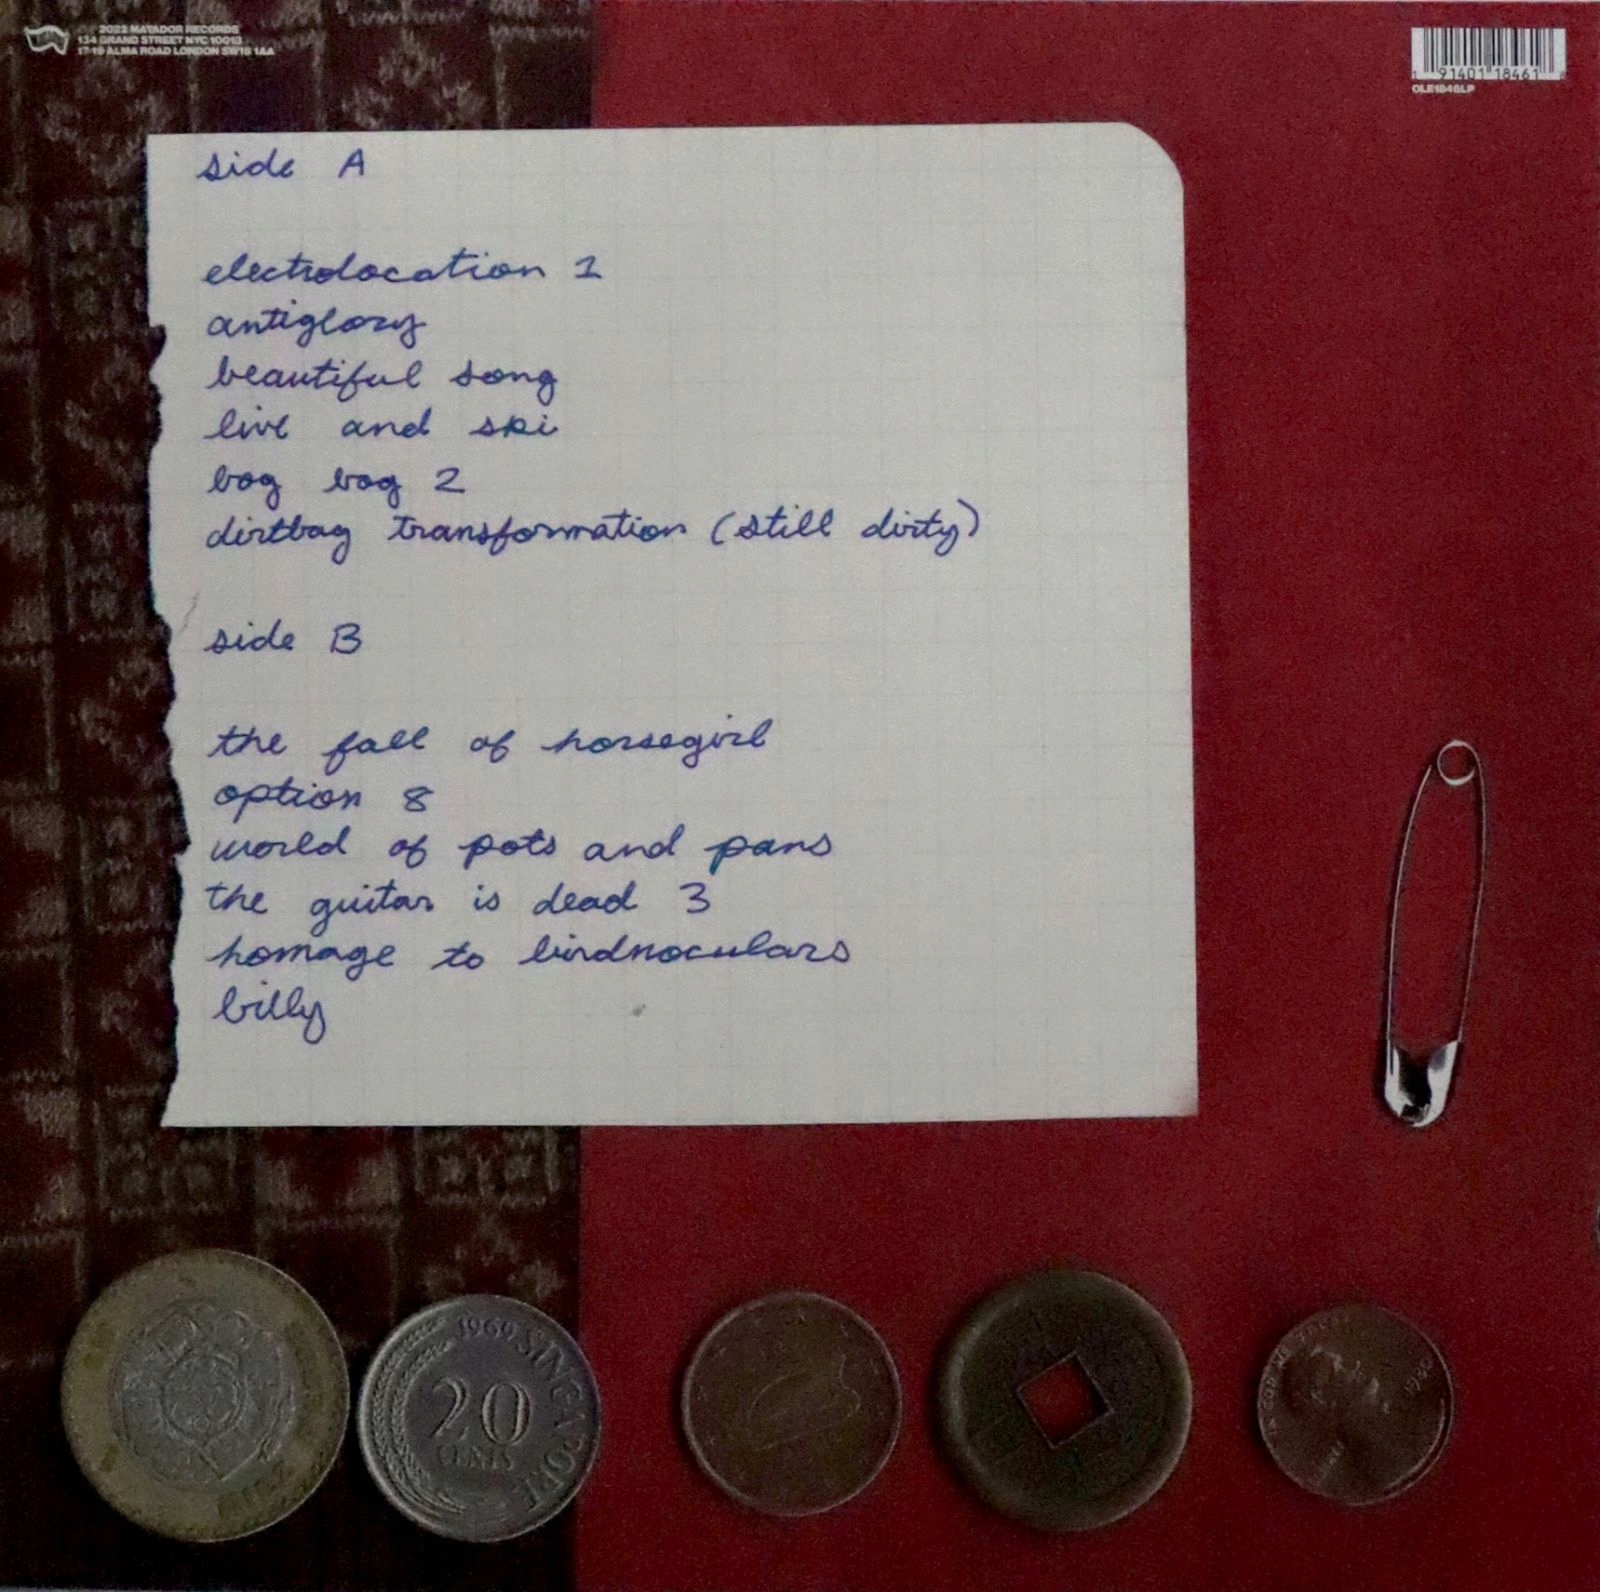 2022 MATADOR RECORDS
134 GRAND STREET NYC 10013
17-19 ALMA ROAD LONDON SW18 1AA
1 91401 18461 8
OLE1846LP
side A
electrolocation 1
antiglory
beautiful song
live and ski
bog bog 2
dirtbag transformation (still dirty)
side B
the fall of horsegirl
option 8
world of pots and pans
the guitar is dead 3
homage to birdnoculars
billy
1969 SINGAPORE
20
CENTS